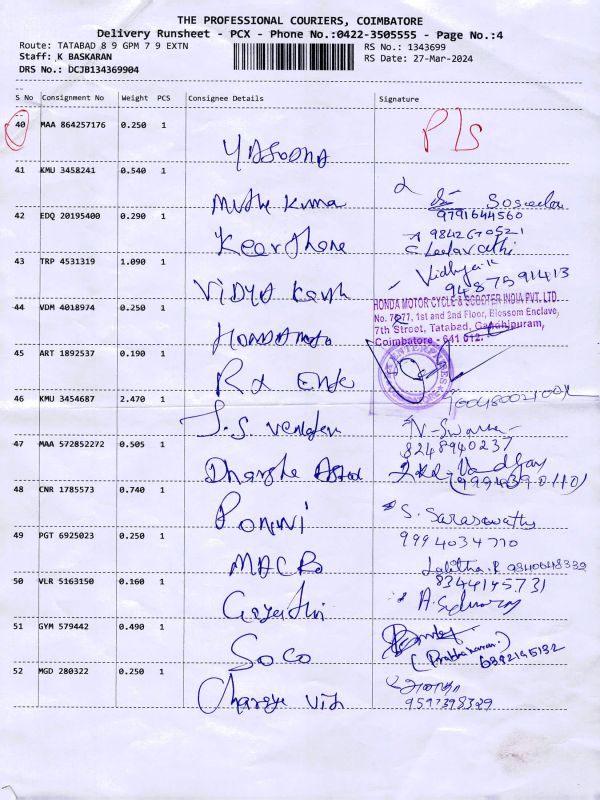 THE PROFESSIONAL COURIERS, COIMBATORE
Delivery Runsheet - PCX - Phone No.:0422-3505555 - Page No.:4
Route: TATABAD 8 9 GPM 7 9 EXTN
RS No.: 1343699
Staff: K BASKARAN
RS Date: 27-Mar-2024
DRS No.: DCJB134369904
S No Consignment No Weight PCS Consignee Details Signature
40 MAA 864257176 0.250 1
P/S
YASODHA
41 KMU 3458241 0.540 1
Muthu Kumar
9791644560
42 EDQ 20195400 0.290 1
9842670521
Keerthana Leelavathi
43 TRP 4531319 1.090 1
Vidhya.K
9487591413
VIDYA
44 VDM 4018974 0.250 1
HONDA MOTOR CYCLE & SCOOTER INDIA PVT. LTD.
No. 7077, 1st and 2nd Floor, Blossom Enclave,
7th Street, Tatabad, Gandhipuram,
Coimbatore - 641 012.
HONDA Moto
45 ART 1892537 0.190 1
ENTERPRISES
46 KMU 3454687 2.470 1
J.S. 
8248940237
47 MAA 572852272 0.505 1
48 CNR 1785573 0.740 1
PONNI S. Saraswathy
9994034770
49 PGT 6925023 0.240 1
MACRO Lalitha.R
8344145731
50 VLR 5163150 0.160 1
Gayathri
51 GYM 579442 0.490 1
SOCO (Prabhakaran)
52 MGD 280322 0.250 1
9597398329